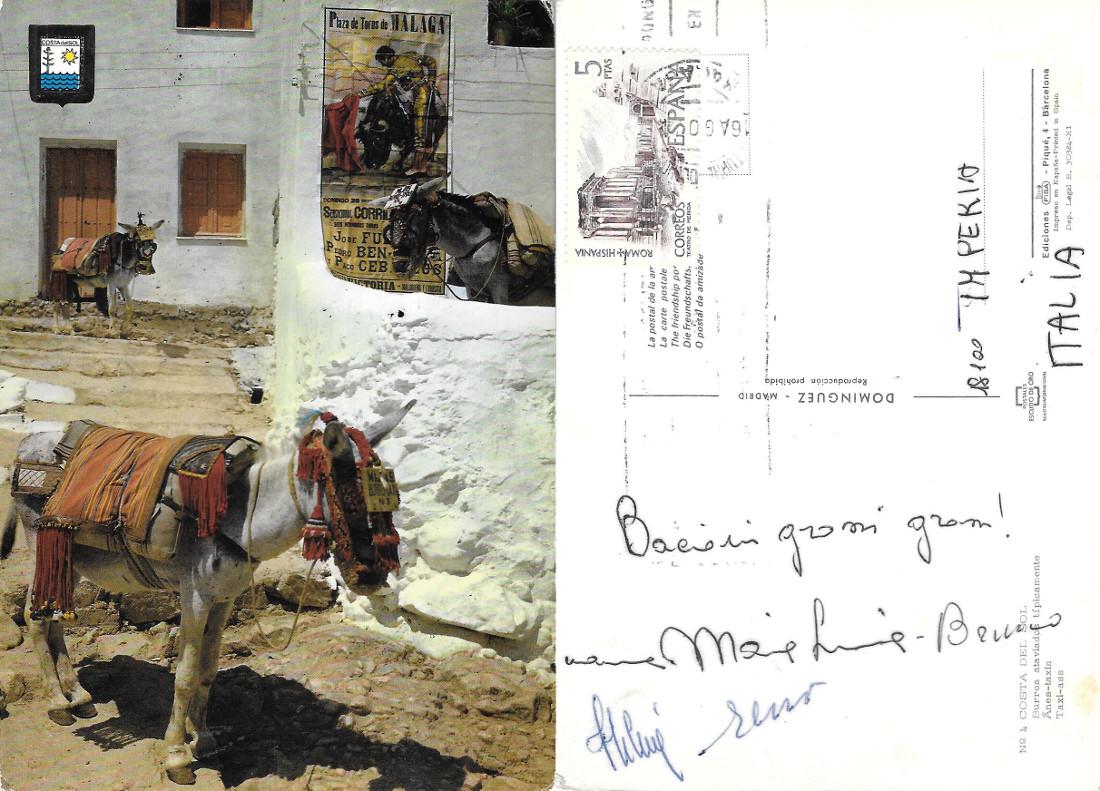 COSTA DEL SOL
Plaza de Toros de MÁLAGA
DOMINGO
CORRI
JOSE FU
BEN
PACO CEB OS
VICTORIA
BURRO
5 PTAS
ESPAÑA
CORREOS
TEATRO DE MERIDA
ROMA + HISPANIA
16 AGO
La postal de la am
La carte postale
The friendship por
Die Freundschafts.
O postal da amizade
DOMINGUEZ - MADRID
Reproducción prohibida
18100 IMPERIA
ITALIA
Ediciones FISA - Piqué, 4 - Barcelona
Impreso en España-Printed in Spain
Dep. Legal B. 30324-XI
POSTALES
ESCUDO DE ORO
Bacioni grossi grossi!
Maria Luisa - Bruno
Nº 4 COSTA DEL SOL
Burros ataviados típicamente
Ânes-taxis
Taxi-ass